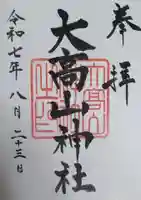 奉拝
大高山神社
令和七年八月二十三日